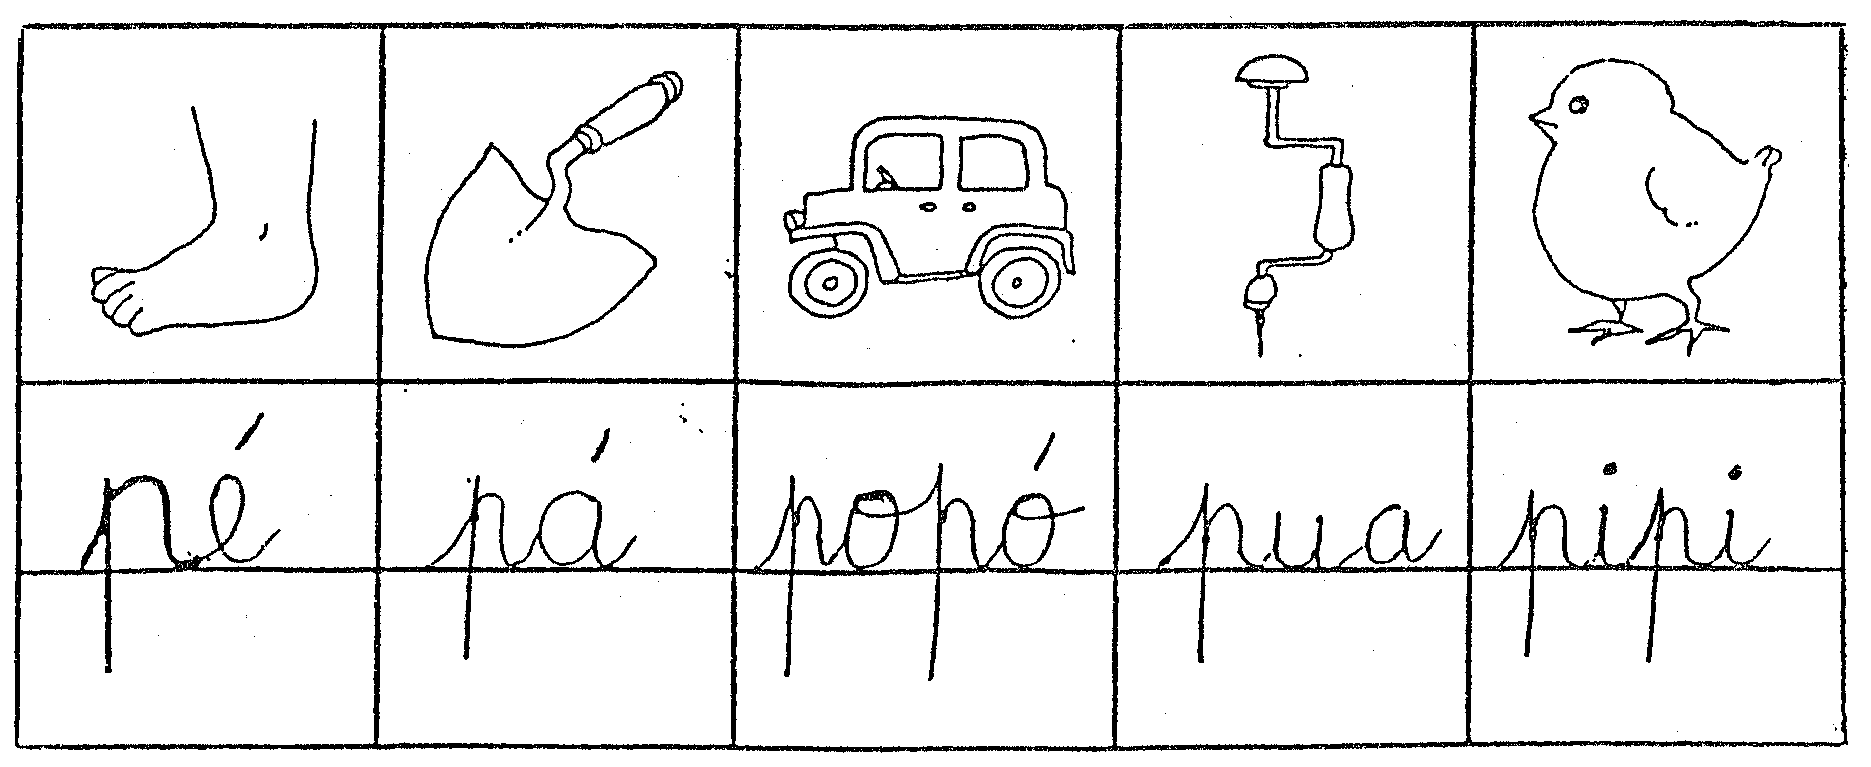 pé pá popó pua pipi